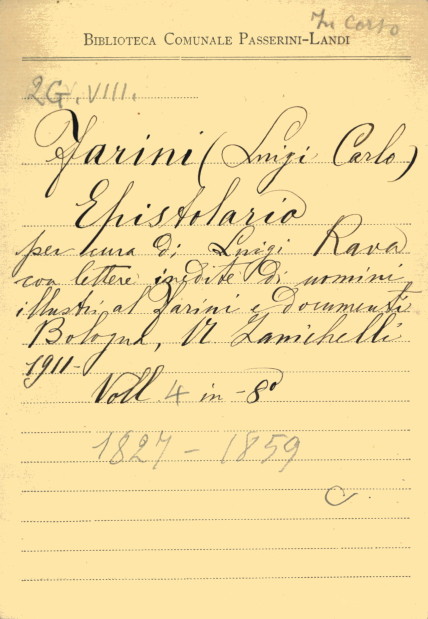 In corso
BIBLIOTECA COMUNALE PASSERINI-LANDI
2G. VIII.
Farini (Luigi Carlo)
Epistolario
per cura di Luigi Rava
con lettere inedite di uomini
illustri al Farini e documenti
Bologna, N Zanichelli
1911-
Voll 4 in-8°
1827-1859
C.